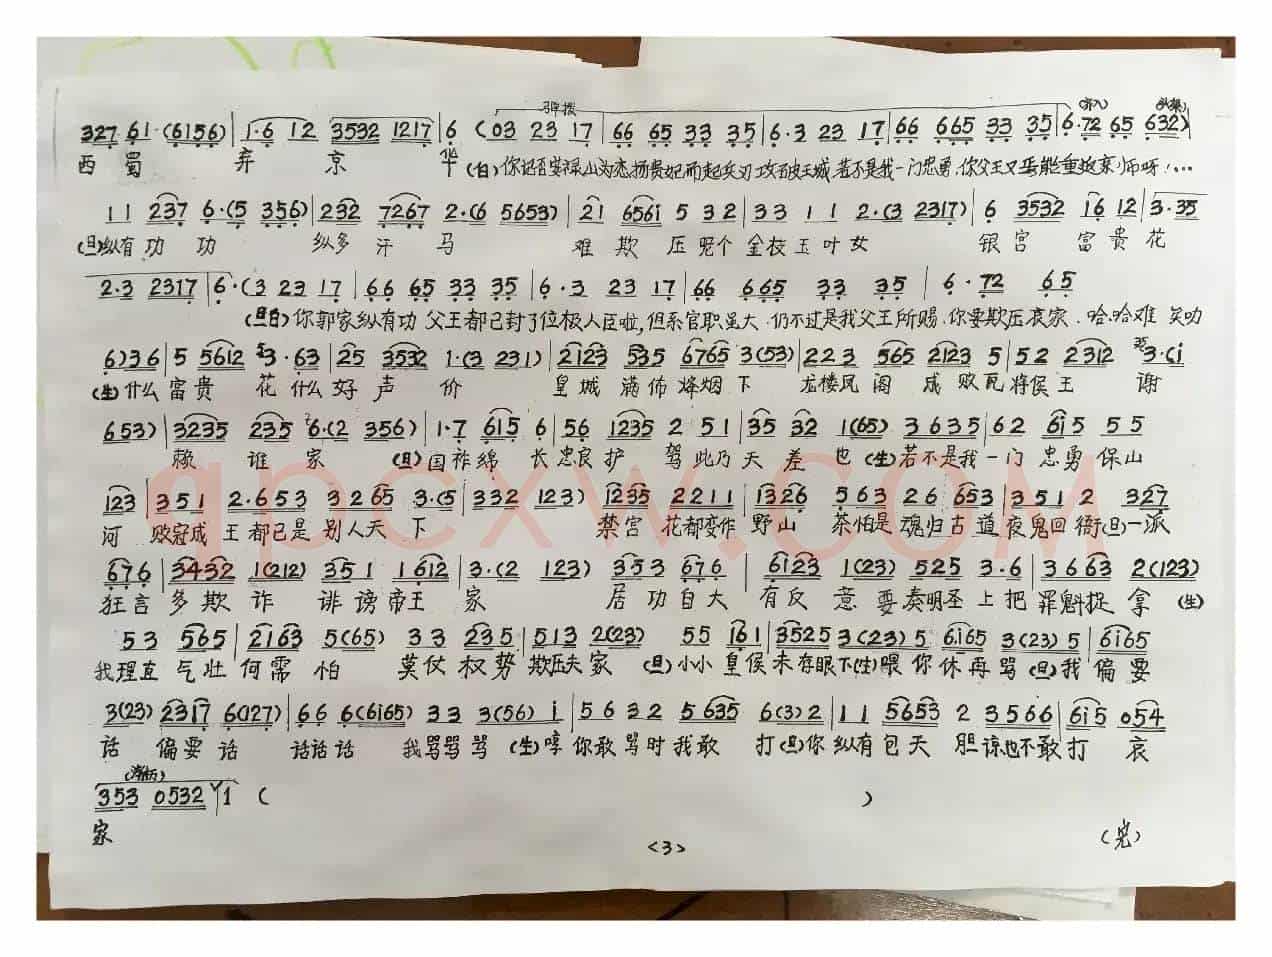 327 61·(6156) | 1·6 12 3532 1217 | 6 (03 23 17 | 66 65 33 35 | 6·3 23 17 | 66 665 33 35 | 6·72 65 632)
西蜀 弃京华 (白)你记否安禄山为恋杨贵妃而起兵刃攻破王城,若不是我一门忠勇,你父王又焉能重返京师呀!…
11 237 6·(5 356) | 232 7267 2·(6 5653) | 21 6561 5 32 | 33 11 2·(3 2317) | 6 3532 16 12 | 3·35
(旦)纵有功功 纵多汗马 难欺压呢个金枝玉叶女 银宫富贵花
2·3 2317 | 6·(3 23 17 | 66 65 33 35 | 6·3 23 17 | 66 665 33 35 | 6·72 65
(旦白)你郭家纵有功 父王都已封了位极人臣啦,但系官职虽大 仍不过是我父王所赐 你要欺压哀家 哈,哈难 笑叻
6)36 | 5 5612 3·63 | 25 3532 1·(3 231) | 2123 535 6765 3(53) | 223 565 2123 5 | 52 2312 3·(i
(生)什么富贵花什么好声价 皇城满佈烽烟下 龙楼凤阁成败瓦将侯王 谢
653) | 3235 235 6·(2 356) | 1·7 615 6 | 56 1235 2 51 | 35 32 1(65) | 3635 | 62 6i5 55
赖谁家 (旦)国祚绵长忠良护驾此乃天差也 (生)若不是我一门忠勇保山
123) | 351 2·653 3265 3·(5 | 332 123) | 1235 2211 | 1326 563 26 653 | 351 2 327
河 败寇成王都已是别人天下 禁宫花都变作野山茶怕是魂归古道夜鬼回衙(旦)一派
676 | 3432 1(212) 351 1612 | 3·(2 123) 353 676 | 6123 1(23) 525 3·6 | 3663 2(123)
狂言多欺诈诽谤帝王家 居功自大有反意要奏明圣上把罪魁捉拿 (生)
53 565 | 2163 5(65) 33 235 | 513 2(23) 55 161 | 3525 3(23)5 6·i65 3(23)5 | 6i65
我理直气壮何需怕 莫仗权势欺压夫家 (旦)小小皇侯未存眼下(生)喂你休再骂(旦)我偏要
3(23) 2317 6(127) | 66 6(6i65) 33 3(56) i | 5632 5635 6(3)2 | 11 5653 2 3566 | 6i5 054
话偏要话 话话话 我骂骂骂 (生)哼你敢骂时我敢打(旦)你纵有包天胆谅也不敢打哀
353 0532 1 ( )
家
(完)
<3>
qpcxw.com